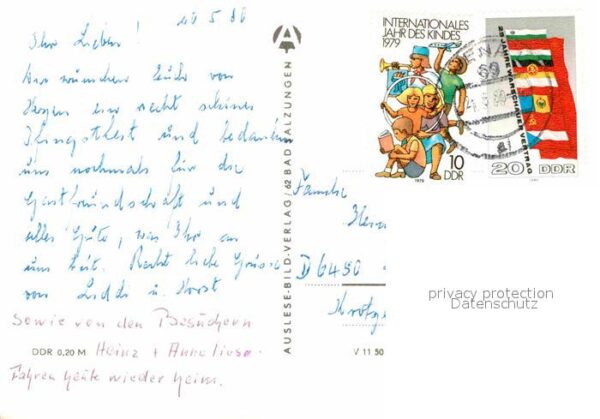 20.5.80
Ihr Lieben!
Wir wünschen Euch von
Herzen ein recht schönes
Pfingstfest und bedanken
uns nochmals für die
Gastfreundschaft und
alles Gute, was Ihr an
uns tut. Recht liebe Grüsse
von u. Horst
Sowie von den Besuchern
Heinz + Anneliese.
Fahren heute wieder heim.
DDR 0,20 M
V 11 50
AUSLESE-BILD-VERLAG / 62 BAD SALZUNGEN
A
INTERNATIONALES
JAHR DES KINDES
1979
10
DDR
1979
25 JAHRE WARSCHAUER VERTRAG
20 DDR
Familie
D 6450
privacy protection
Datenschutz